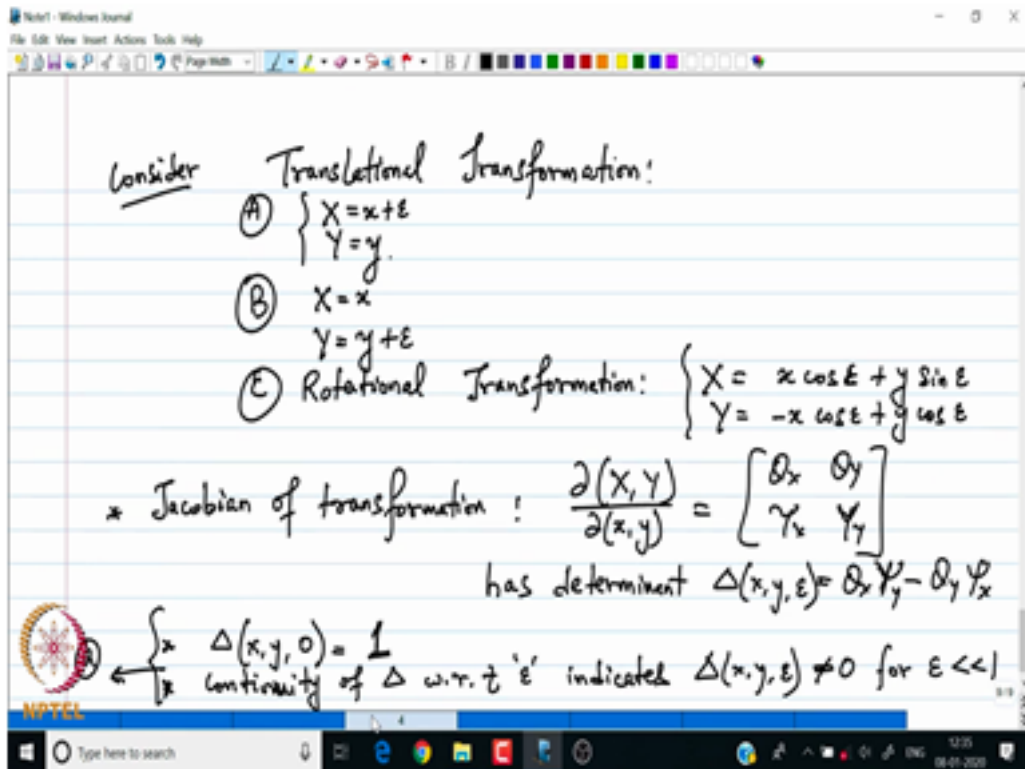 Note1 - Windows Journal
File Edit View Insert Actions Tools Help
Page Width
B I
Consider Translational Transformation:
(A) { X = x+ε
Y = y.
(B) X = x
Y = y+ε
(C) Rotational Transformation: { X = x cos ε + y sin ε
Y = -x cos ε + y cos ε
* Jacobian of transformation: ∂(X, Y)/∂(x, y) = [θx θy
ψx ψy]
has determinant Δ(x, y, ε) = θx ψy - θy ψx
{ * Δ(x, y, 0) = 1
* continuity of Δ w.r.t 'ε' indicates Δ(x, y, ε) ≠ 0 for ε << 1
NPTEL
9/9
4
Type here to search
ENG
12:35
08-01-2020